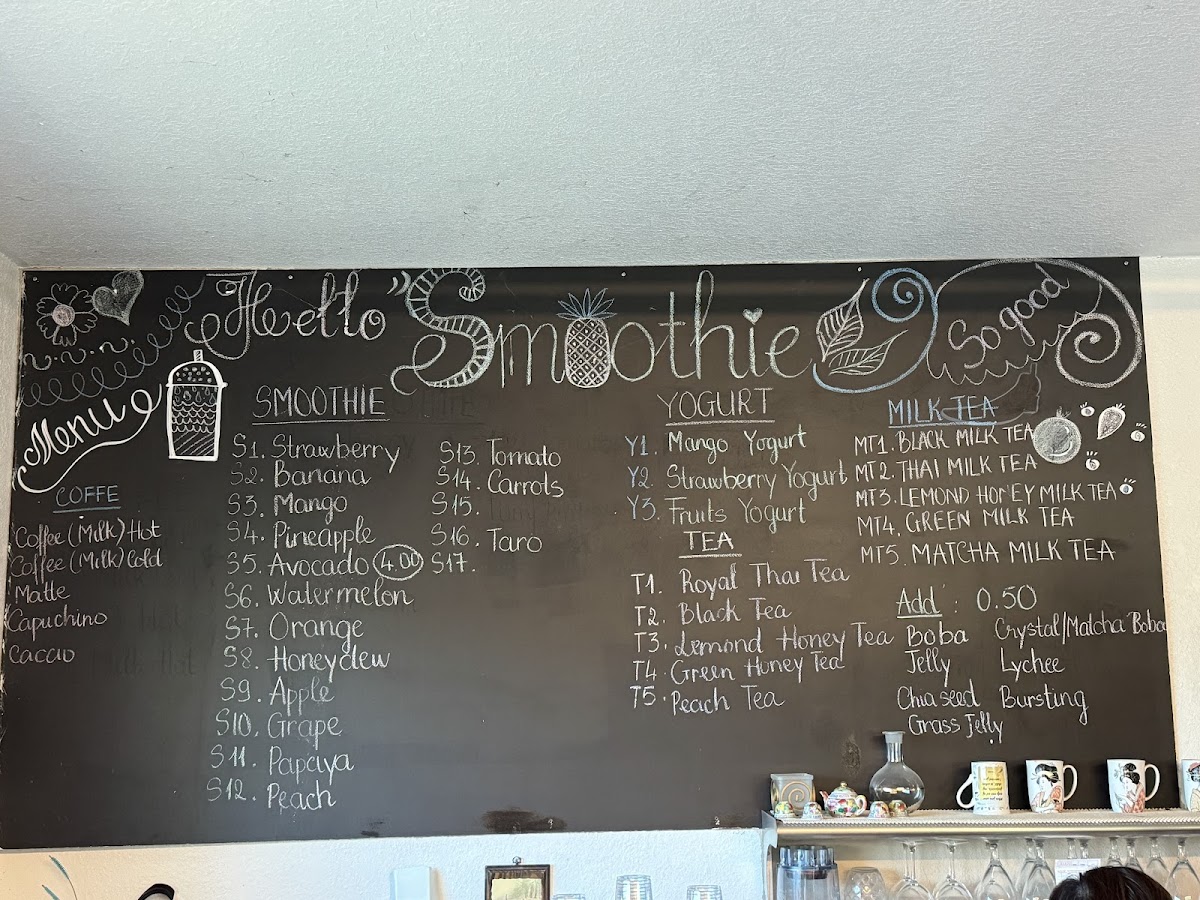 "Hello" Smoothie
So good
Menu
COFFE
Coffee (Milk) Hot
Coffee (Milk) Cold
Matte
Capuchino
Cacao
SMOOTHIE
S1. Strawberry
S2. Banana
S3. Mango
S4. Pineapple
S5. Avocado 4.00
S6. Watermelon
S7. Orange
S8. Honeydew
S9. Apple
S10. Grape
S11. Papaya
S12. Peach
S13. Tomato
S14. Carrots
S15.
S16. Taro
S17.
YOGURT
Y1. Mango Yogurt
Y2. Strawberry Yogurt
Y3. Fruits Yogurt
TEA
T1. Royal Thai Tea
T2. Black Tea
T3. Lemond Honey Tea
T4. Green Honey Tea
T5. Peach Tea
MILK TEA
MT1. BLACK MILK TEA
MT2. THAI MILK TEA
MT3. LEMOND HONEY MILK TEA
MT4. GREEN MILK TEA
MT5. MATCHA MILK TEA
Add : 0.50
Boba Crystal/Matcha Boba
Jelly Lychee
Chia seed Bursting
Grass Jelly